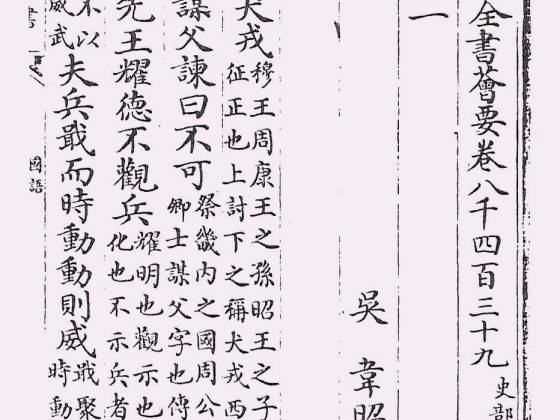 全書薈要卷八千四百三十九 史部
一
吳 韋昭
犬戎穆王周康王之孫昭王之子
征正也上討下之稱犬戎西
謀父諫曰不可祭畿内之國周公
卿士謀父字也傳
先王耀德不觀兵耀明也觀示也
化也不示兵者
夫兵戢而時動動則威戢聚
時動
不以
威武
國語